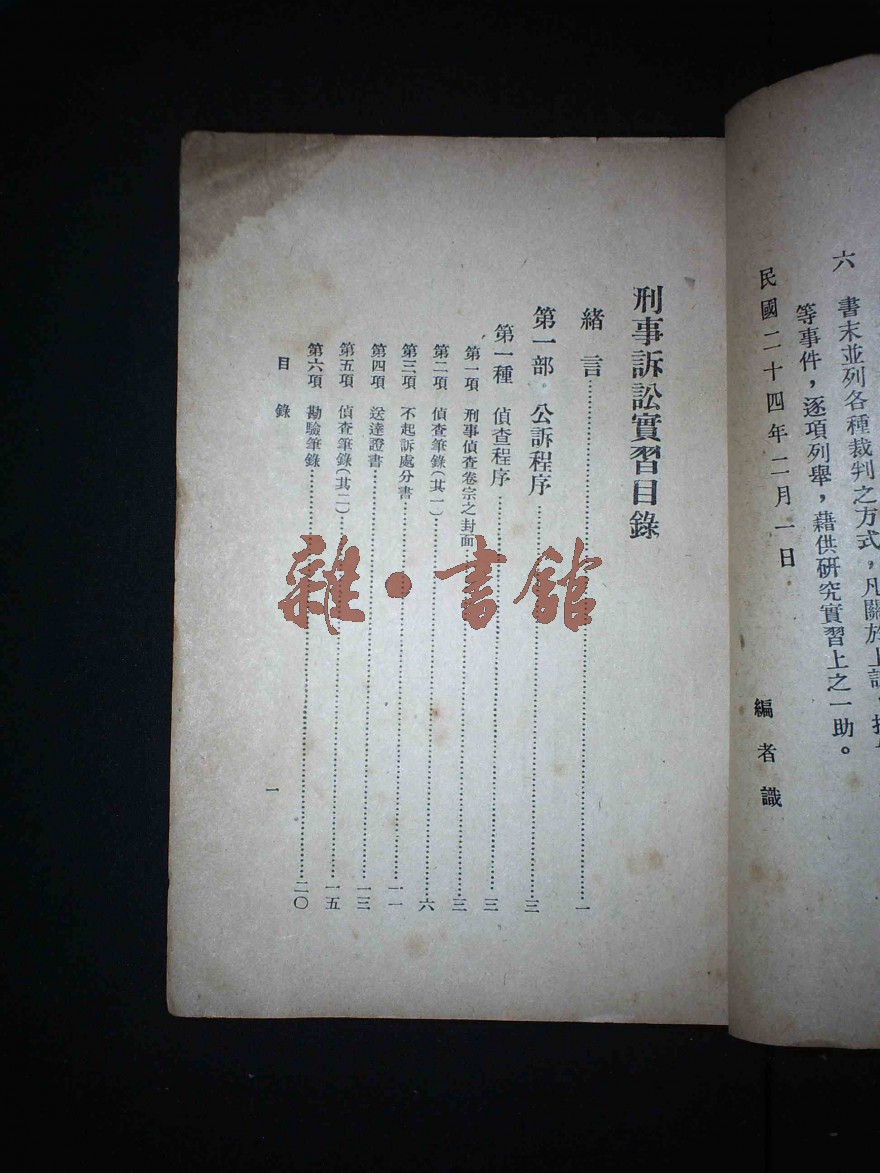 六　書末並列各種裁判之方式，凡關於上訴，
等事件，逐項列舉，藉供研究實習上之一助。
民國二十四年二月一日
編者識
刑事訴訟實習目錄
緒言……………一
第一部　公訴程序……………三
第一種　偵查程序……………三
第一項　刑事偵查卷宗之封面……………三
第二項　偵查筆錄(其一)……………六
第三項　不起訴處分書……………一一
第四項　送達證書……………一三
第五項　偵查筆錄(其二)……………一五
第六項　勘驗筆錄……………二〇
目錄
一
雜·書館